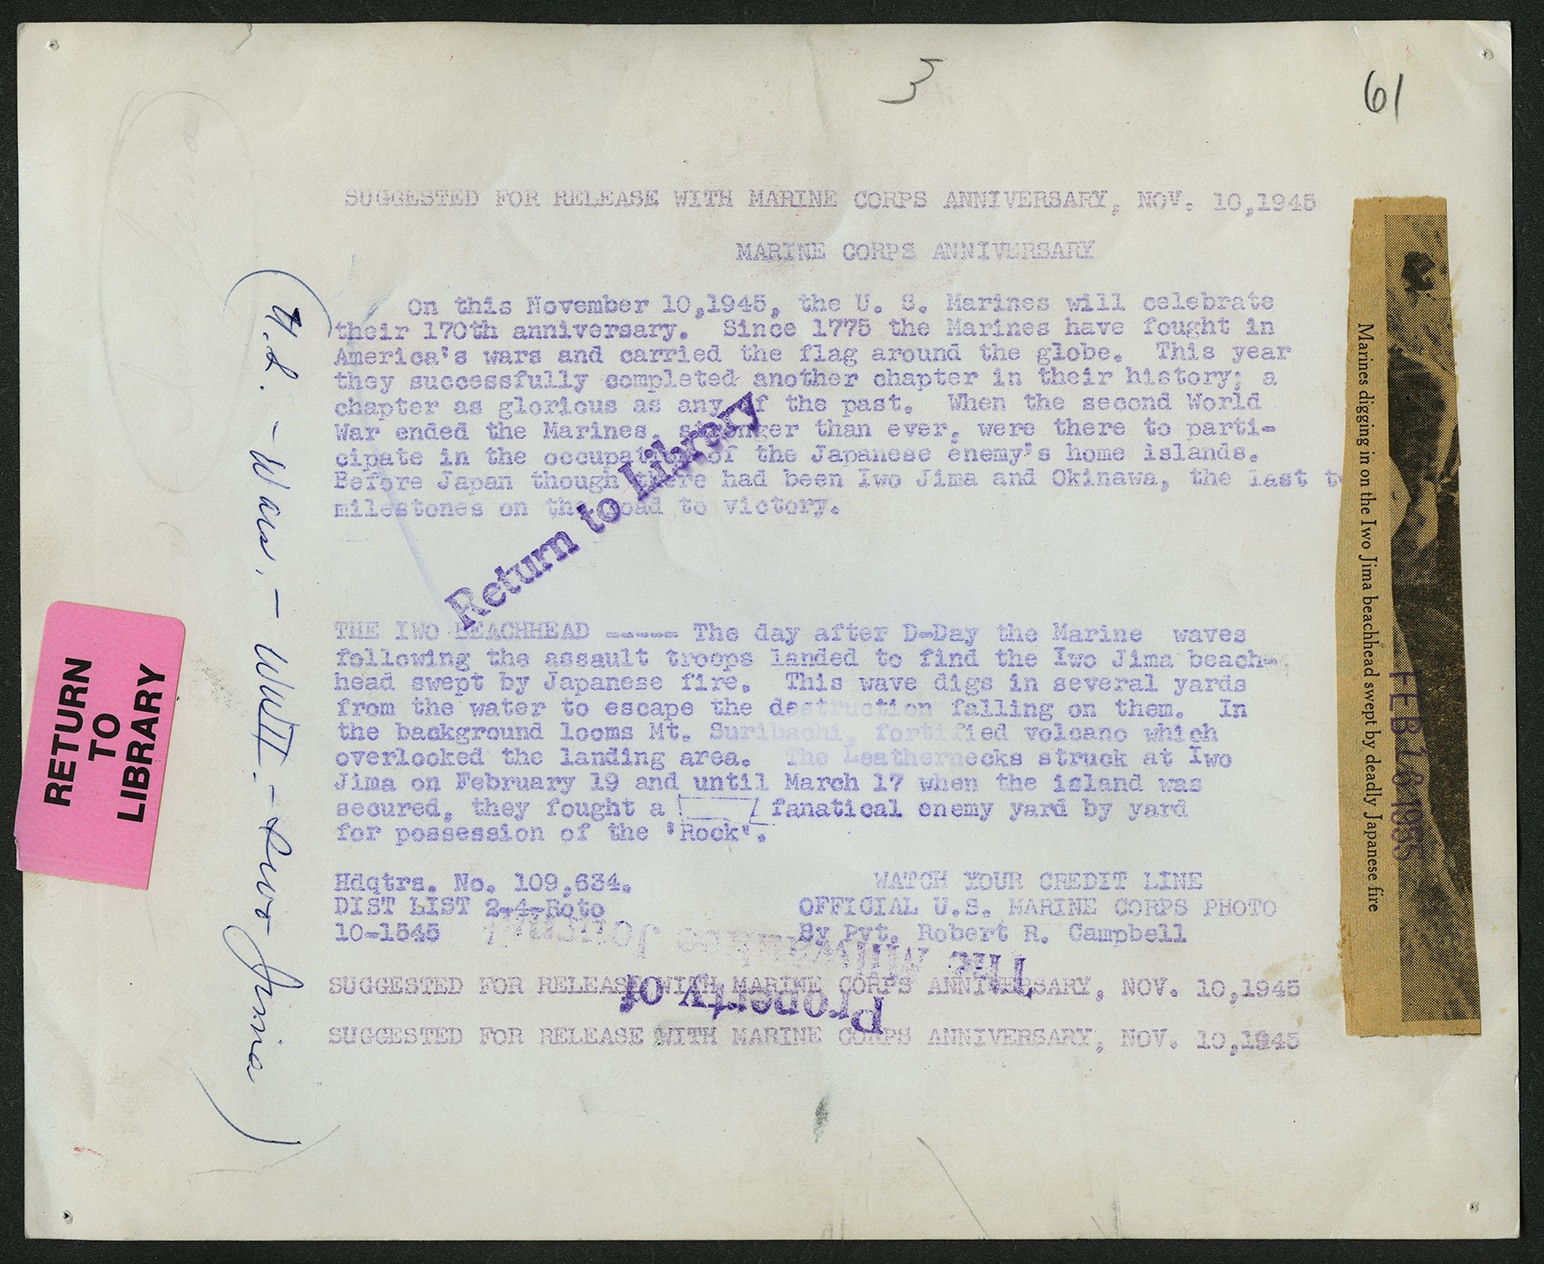 3
61
SUGGESTED FOR RELEASE WITH MARINE CORPS ANNIVERSARY, NOV. 10,1945
MARINE CORPS ANNIVERSARY
On this November 10,1945, the U. S. Marines will celebrate
their 170th anniversary. Since 1775 the Marines have fought in
America's wars and carried the flag around the globe. This year
they successfully completed another chapter in their history; a
chapter as glorious as any of the past. When the second World
War ended the Marines, stronger than ever, were there to parti-
cipate in the occupation of the Japanese enemy's home islands.
Before Japan though there had been Iwo Jima and Okinawa, the last
milestones on the road to victory.
Return to Library
THE IWO BEACHHEAD ----- The day after D-Day the Marine waves
following the assault troops landed to find the Iwo Jima beach-
head swept by Japanese fire. This wave digs in several yards
from the water to escape the destruction falling on them. In
the background looms Mt. Suribachi, fortified volcano which
overlooked the landing area. The Leathernecks struck at Iwo
Jima on February 19 and until March 17 when the island was
secured, they fought a fanatical enemy yard by yard
for possession of the 'Rock'.
Hdqtrs. No. 109,634.
DIST LIST 2-4-Roto
10-1545
WATCH YOUR CREDIT LINE
OFFICIAL U.S. MARINE CORPS PHOTO
By Pvt. Robert R. Campbell
SUGGESTED FOR RELEASE WITH MARINE CORPS ANNIVERSARY, NOV. 10,1945
SUGGESTED FOR RELEASE WITH MARINE CORPS ANNIVERSARY, NOV. 10,1945
Property of
The Milwaukee Journal
RETURN
TO
LIBRARY
(U.S. - Wars. - WWII. - Iwo Jima)
Marines digging in on the Iwo Jima beachhead swept by deadly Japanese fire
FEB 1 8 1955